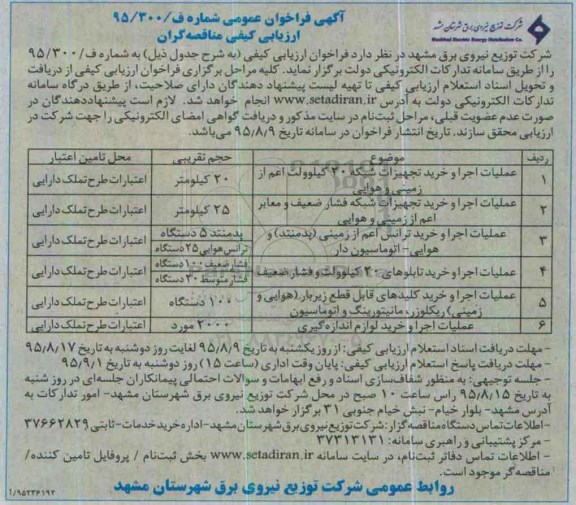 آگهی فراخوان عمومی شماره ف/۹۵/۳۰۰
ارزیابی کیفی مناقصه‌گران
شرکت توزیع نیروی برق شهرستان مشهد
Mashhad Electric Energy Distribution Co.
شرکت توزیع نیروی برق مشهد در نظر دارد فراخوان ارزیابی کیفی (به شرح جدول ذیل) به شماره ف/۹۵/۳۰۰
را از طریق سامانه تدارکات الکترونیکی دولت برگزار نماید. کلیه مراحل برگزاری فراخوان ارزیابی کیفی از دریافت
و تحویل اسناد استعلام ارزیابی کیفی تا تهیه لیست پیشنهاد دهندگان دارای صلاحیت، از طریق درگاه سامانه
تدارکات الکترونیکی دولت به آدرس www.setadiran.ir انجام خواهد شد. لازم است پیشنهاددهندگان در
صورت عدم عضویت قبلی، مراحل ثبت‌نام در سایت مذکور و دریافت گواهی امضای الکترونیکی را جهت شرکت در
ارزیابی محقق سازند. تاریخ انتشار فراخوان در سامانه تاریخ ۹۵/۸/۹ می‌باشد.
ردیف موضوع حجم تقریبی محل تامین اعتبار
۱ عملیات اجرا و خرید تجهیزات شبکه ۲۰ کیلوولت اعم از زمینی و هوایی ۲۰ کیلومتر اعتبارات طرح تملک دارایی
۲ عملیات اجرا و خرید تجهیزات شبکه فشار ضعیف و معابر اعم از زمینی و هوایی ۲۵ کیلومتر اعتبارات طرح تملک دارایی
۳ عملیات اجرا و خرید ترانس اعم از زمینی (پدمنتد) و هوایی- اتوماسیون دار پدمنتد ۵ دستگاه ترانس هوایی ۲۵ دستگاه اعتبارات طرح تملک دارایی
۴ عملیات اجرا و خرید تابلوهای ۲۰ کیلوولت و فشار ضعیف فشار ضعیف ۱۰۰ دستگاه فشار متوسط ۳۰ دستگاه اعتبارات طرح تملک دارایی
۵ عملیات اجرا و خرید کلیدهای قابل قطع زیربار (هوایی و زمینی) ریکلوزر، مانیتورینگ و اتوماسیون ۱۰۰ دستگاه اعتبارات طرح تملک دارایی
۶ عملیات اجرا و خرید لوازم اندازه‌گیری ۲۰۰۰ مورد اعتبارات طرح تملک دارایی
- مهلت دریافت اسناد استعلام ارزیابی کیفی: از روز یکشنبه به تاریخ ۹۵/۸/۹ لغایت روز دوشنبه به تاریخ ۹۵/۸/۱۷
- مهلت دریافت پاسخ استعلام ارزیابی کیفی: پایان وقت اداری (ساعت ۱۵) روز دوشنبه به تاریخ ۹۵/۹/۱
- جلسه توجیهی: به منظور شفاف‌سازی اسناد و رفع ابهامات و سوالات احتمالی پیمانکاران جلسه‌ای در روز شنبه
به تاریخ ۹۵/۸/۱۵ راس ساعت ۱۰ صبح در محل شرکت توزیع نیروی برق شهرستان مشهد- امور تدارکات به
آدرس مشهد- بلوار خیام- نبش خیام جنوبی ۳۱ برگزار خواهد شد.
-اطلاعات تماس دستگاه مناقصه‌گزار: شرکت توزیع نیروی برق شهرستان مشهد-اداره خرید خدمات-ثابتی ۳۷۶۶۲۸۲۹
- مرکز پشتیبانی و راهبری سامانه: ۳۷۳۱۳۱۳۱
- اطلاعات تماس دفاتر ثبت‌نام، در سایت سامانه www.setadiran.ir بخش ثبت‌نام / پروفایل تامین کننده/
مناقصه‌گر موجود است.
روابط عمومی شرکت توزیع نیروی برق شهرستان مشهد
۹۵۲۳۶۱۹۲/آ